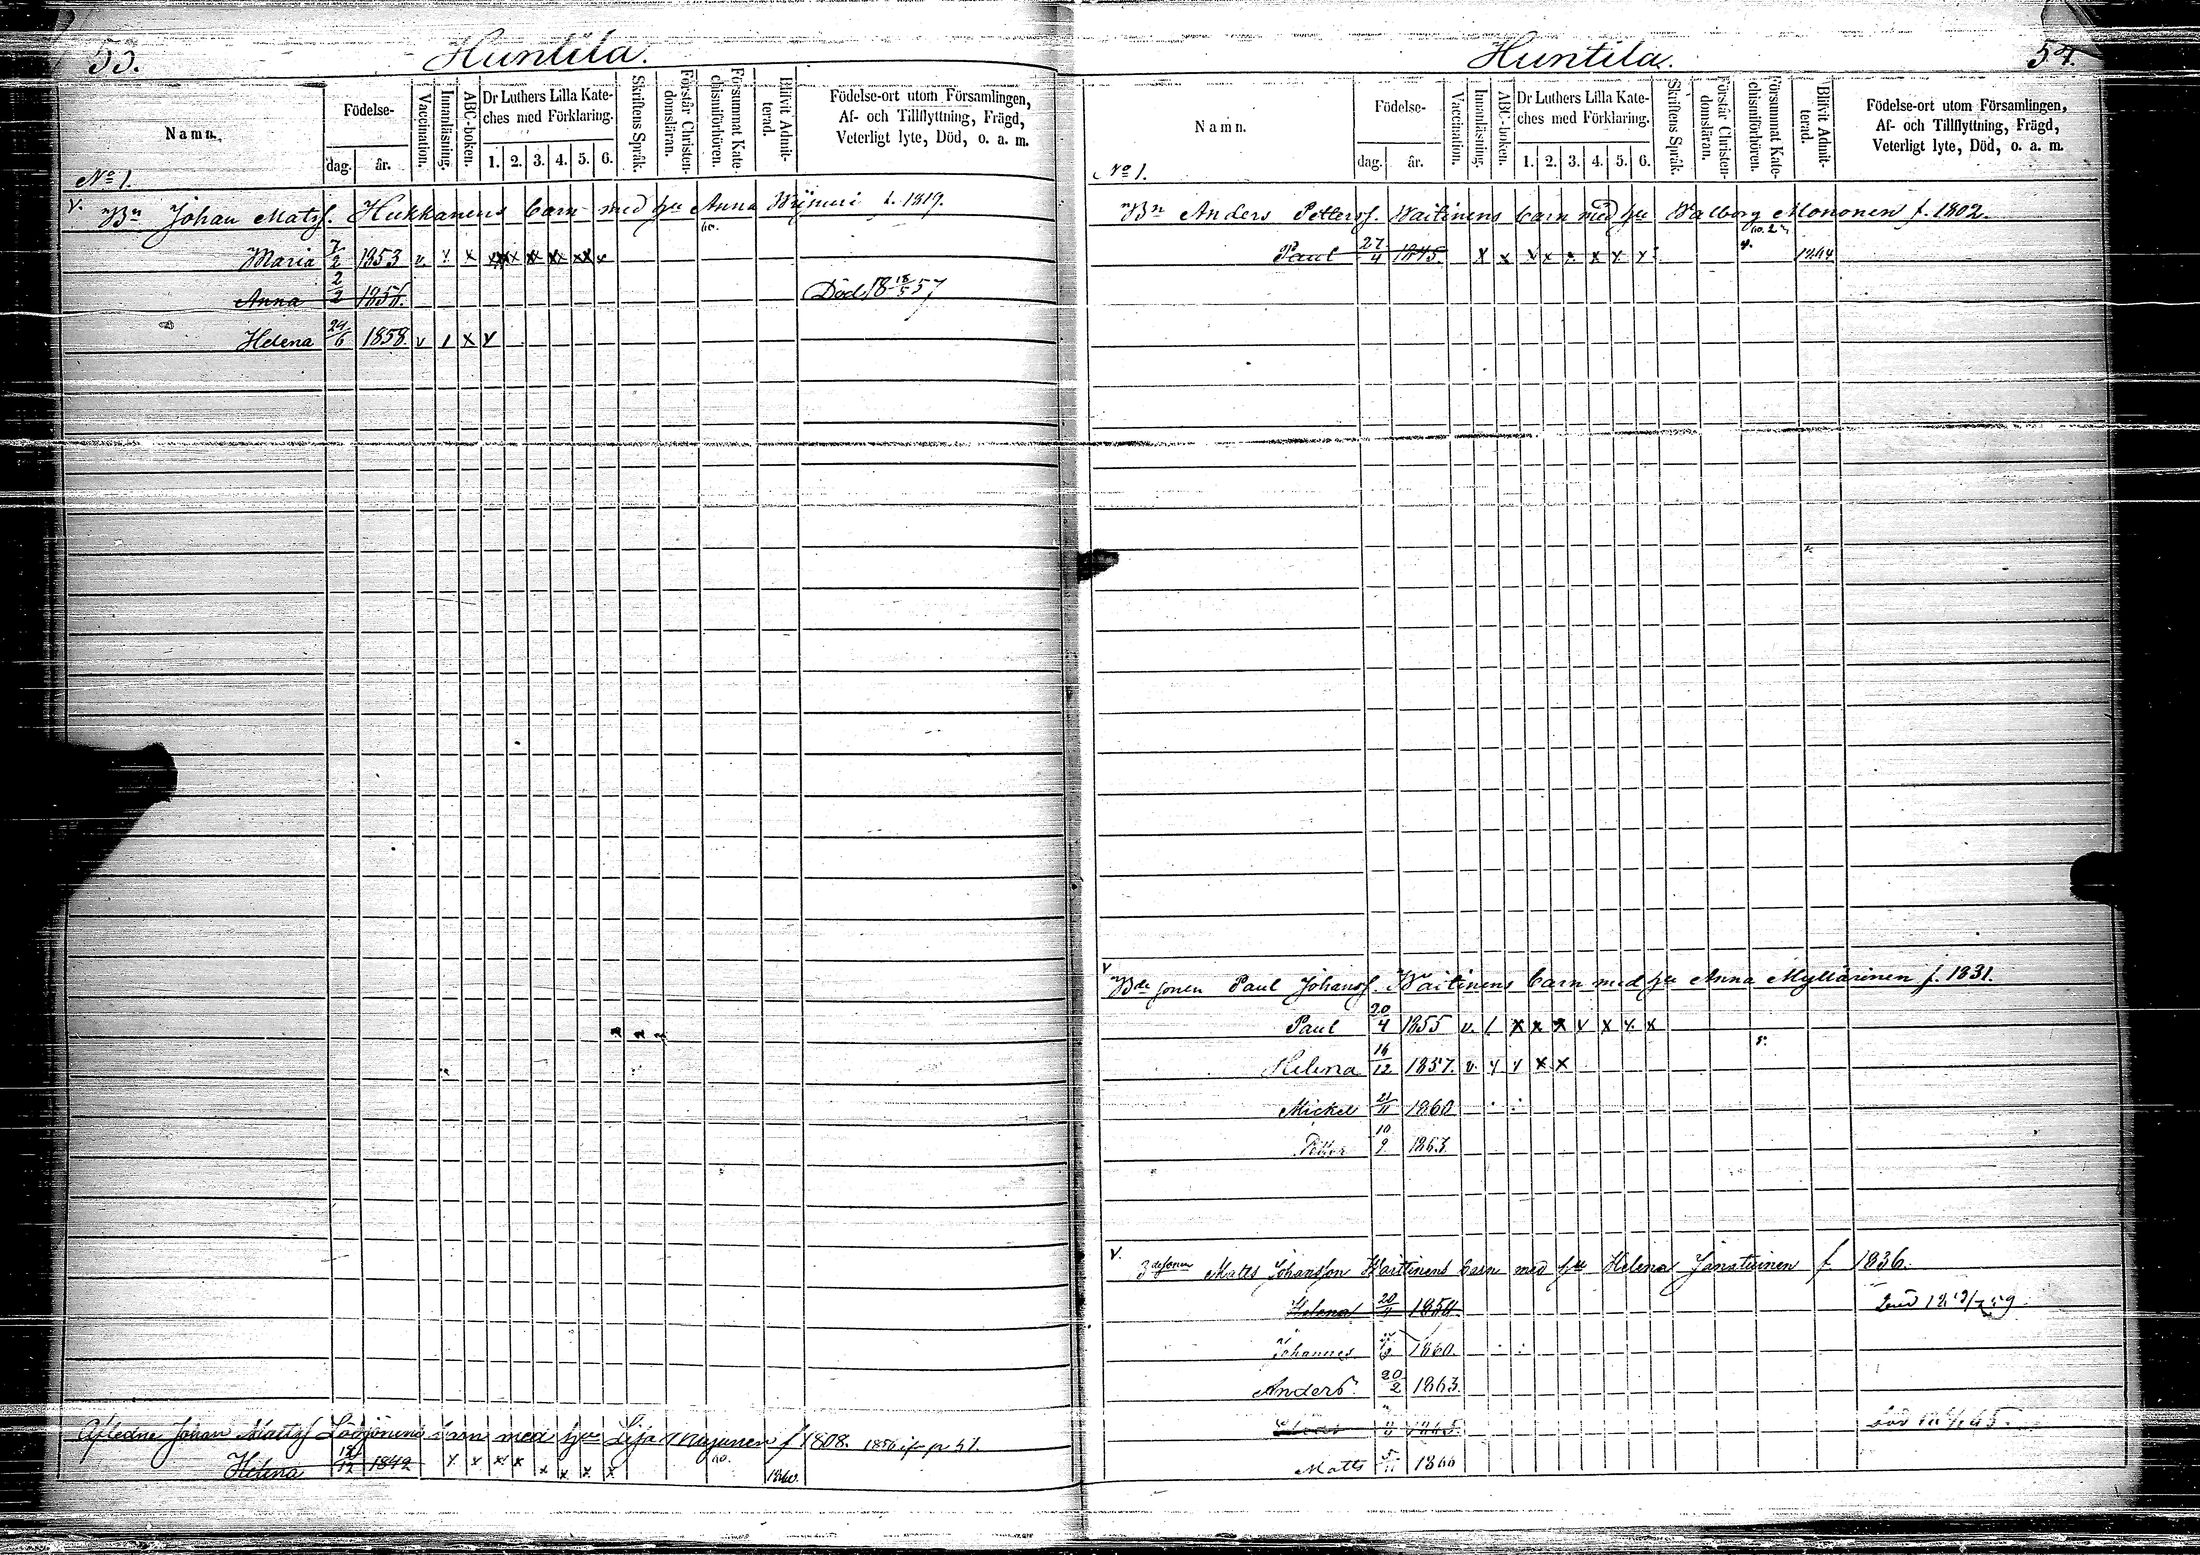 53. Huntila.
Namn.
Födelse-
dag. år.
Vaccination.
Innanläsning.
ABC-boken.
Dr Luthers Lilla Kate-
ches med Förklaring.
1. 2. 3. 4. 5. 6.
Skriftens Språk.
Förstår Christen-
domsläran.
Försummat Kate-
chismiförhören.
Blifvit Admit-
terad.
Födelse-ort utom Församlingen,
Af- och Tillflyttning, Frägd,
Veterligt lyte, Död, o. a. m.
No 1.
v. Bn Johan Matsf. Hukkanens barn med hu Anna f. 1819.
Maria 7/2 1853 v. x x
Anna 2/2 1856. Död 18 18/5 57
Helena 29/6 1858 v x x
Afledne Johan Mattsf barn med hu Lisa f 1808.
Helena 1842
54. Huntila.
Namn.
Födelse-
dag. år.
Vaccination.
Innanläsning.
ABC-boken.
Dr Luthers Lilla Kate-
ches med Förklaring.
1. 2. 3. 4. 5. 6.
Skriftens Språk.
Förstår Christen-
domsläran.
Försummat Kate-
chismiförhören.
Blifvit Admit-
terad.
Födelse-ort utom Församlingen,
Af- och Tillflyttning, Frägd,
Veterligt lyte, Död, o. a. m.
No 1.
Bn Anders Pettersf. Waitinens barn med hu Walborg Mononen f. 1802.
Paul 27/4 1845. x x x x x x x x
v Bde sonen Paul Johansf. Waitinens barn med hu Anna Myllärinen f. 1831.
Paul 20/4 1855 v. / x x x x x x x
Helena 16/12 1857. v. x x x x
Mickel 21/11 1860
Petter 10/9 1863
v. Bde sonen Matts Johansson Waitinens barn med hu Helena f 1836.
Helena 20/9 1858
Johannes 1860
Anders 20/2 1863.
1865.
Matts 5/11 1866